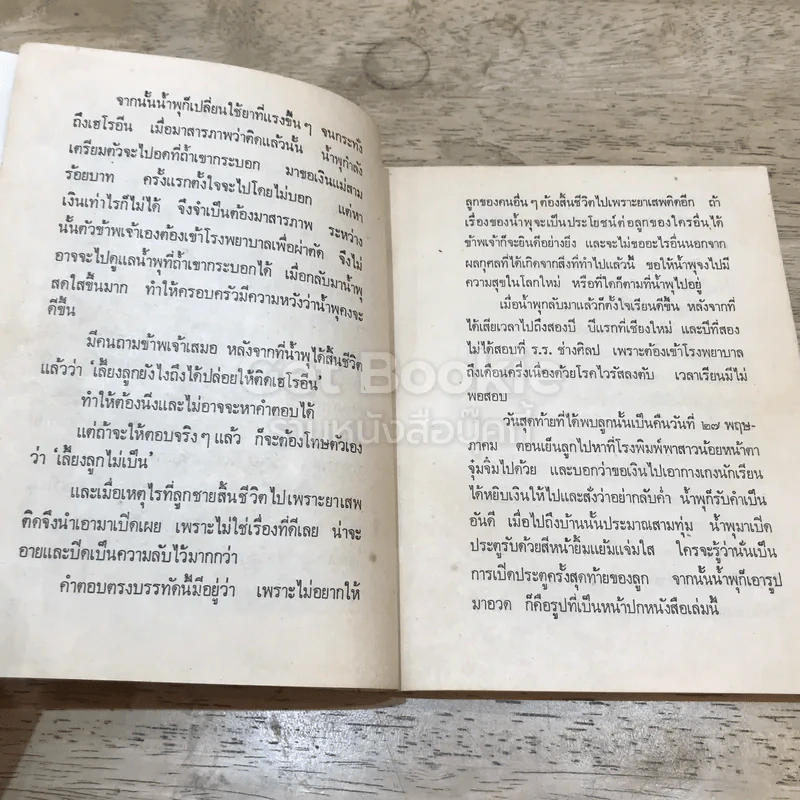 จากนั้นน้ำพุก็เปลี่ยนใช้ยาที่แรงขึ้นๆ จนกระทั่ง
ถึงเฮโรอีน เมื่อมาสารภาพว่าติดแล้วนั้น น้ำพุกำลัง
เตรียมตัวจะไปอดที่ถ้ำเขากระบอก มาขอเงินแม่สาม
ร้อยบาท ครั้งแรกตั้งใจจะไปโดยไม่บอก แต่หา
เงินเท่าไรก็ไม่ได้ จึงจำเป็นต้องมาสารภาพ ระหว่าง
นั้นตัวข้าพเจ้าเองต้องเข้าโรงพยาบาลเพื่อผ่าตัด จึงไม่
อาจจะไปดูแลน้ำพุที่ถ้ำเขากระบอกได้ เมื่อกลับมาน้ำพุ
สดใสขึ้นมาก ทำให้ครอบครัวมีความหวังว่าน้ำพุคงจะ
ดีขึ้น
มีคนถามข้าพเจ้าเสมอ หลังจากที่น้ำพุได้สิ้นชีวิต
แล้วว่า ‘เลี้ยงลูกยังไงถึงได้ปล่อยให้ติดเฮโรอีน’
ทำให้ต้องนิ่งและไม่อาจจะหาคำตอบได้
แต่ถ้าจะให้ตอบจริงๆ แล้ว ก็จะต้องโทษตัวเอง
ว่า ‘เลี้ยงลูกไม่เป็น’
และเมื่อเหตุไรที่ลูกชายสิ้นชีวิตไปเพราะยาเสพ
ติดจึงนำเอามาเปิดเผย เพราะไม่ใช่เรื่องที่ดีเลย น่าจะ
อายและปิดเป็นความลับไว้มากกว่า
คำตอบตรงบรรทัดนี้มีอยู่ว่า เพราะไม่อยากให้
ลูกของคนอื่นๆ ต้องสิ้นชีวิตไปเพราะยาเสพติดอีก ถ้า
เรื่องของน้ำพุจะเป็นประโยชน์ต่อลูกของใครอื่นได้
ข้าพเจ้าก็จะยินดีอย่างยิ่ง และจะไม่ขออะไรอื่นนอกจาก
ผลกุศลที่ได้เกิดจากสิ่งที่ทำไปแล้วนี้ ขอให้น้ำพุจงไปมี
ความสุขในโลกใหม่ หรือที่ใดก็ตามที่น้ำพุไปอยู่
เมื่อน้ำพุกลับมาแล้วก็ตั้งใจเรียนดีขึ้น หลังจากที่
ได้เสียเวลาไปถึงสองปี ปีแรกที่เชียงใหม่ และปีที่สอง
ไม่ได้สอบที่ ร.ร. ช่างศิลป เพราะต้องเข้าโรงพยาบาล
ถึงเดือนครึ่งเนื่องด้วยโรคไวรัสลงตับ เวลาเรียนมีไม่
พอสอบ
วันสุดท้ายที่ได้พบลูกนั้นเป็นคืนวันที่ ๒๗ พฤษ-
ภาคม ตอนเย็นลูกไปหาที่โรงพิมพ์พาสาวน้อยหน้าตา
จุ๋มจิ๋มไปด้วย และบอกว่าขอเงินไปเอากางเกงนักเรียน
ได้หยิบเงินให้ไปและสั่งว่าอย่ากลับค่ำ น้ำพุก็รับคำเป็น
อันดี เมื่อไปถึงบ้านนั้นประมาณสามทุ่ม น้ำพุมาเปิด
ประตูรับด้วยสีหน้ายิ้มแย้มแจ่มใส ใครจะรู้ว่านั่นเป็น
การเปิดประตูครั้งสุดท้ายของลูก จากนั้นน้ำพุก็เอารูป
มาอวด ก็คือรูปที่เป็นหน้าปกหนังสือเล่มนี้